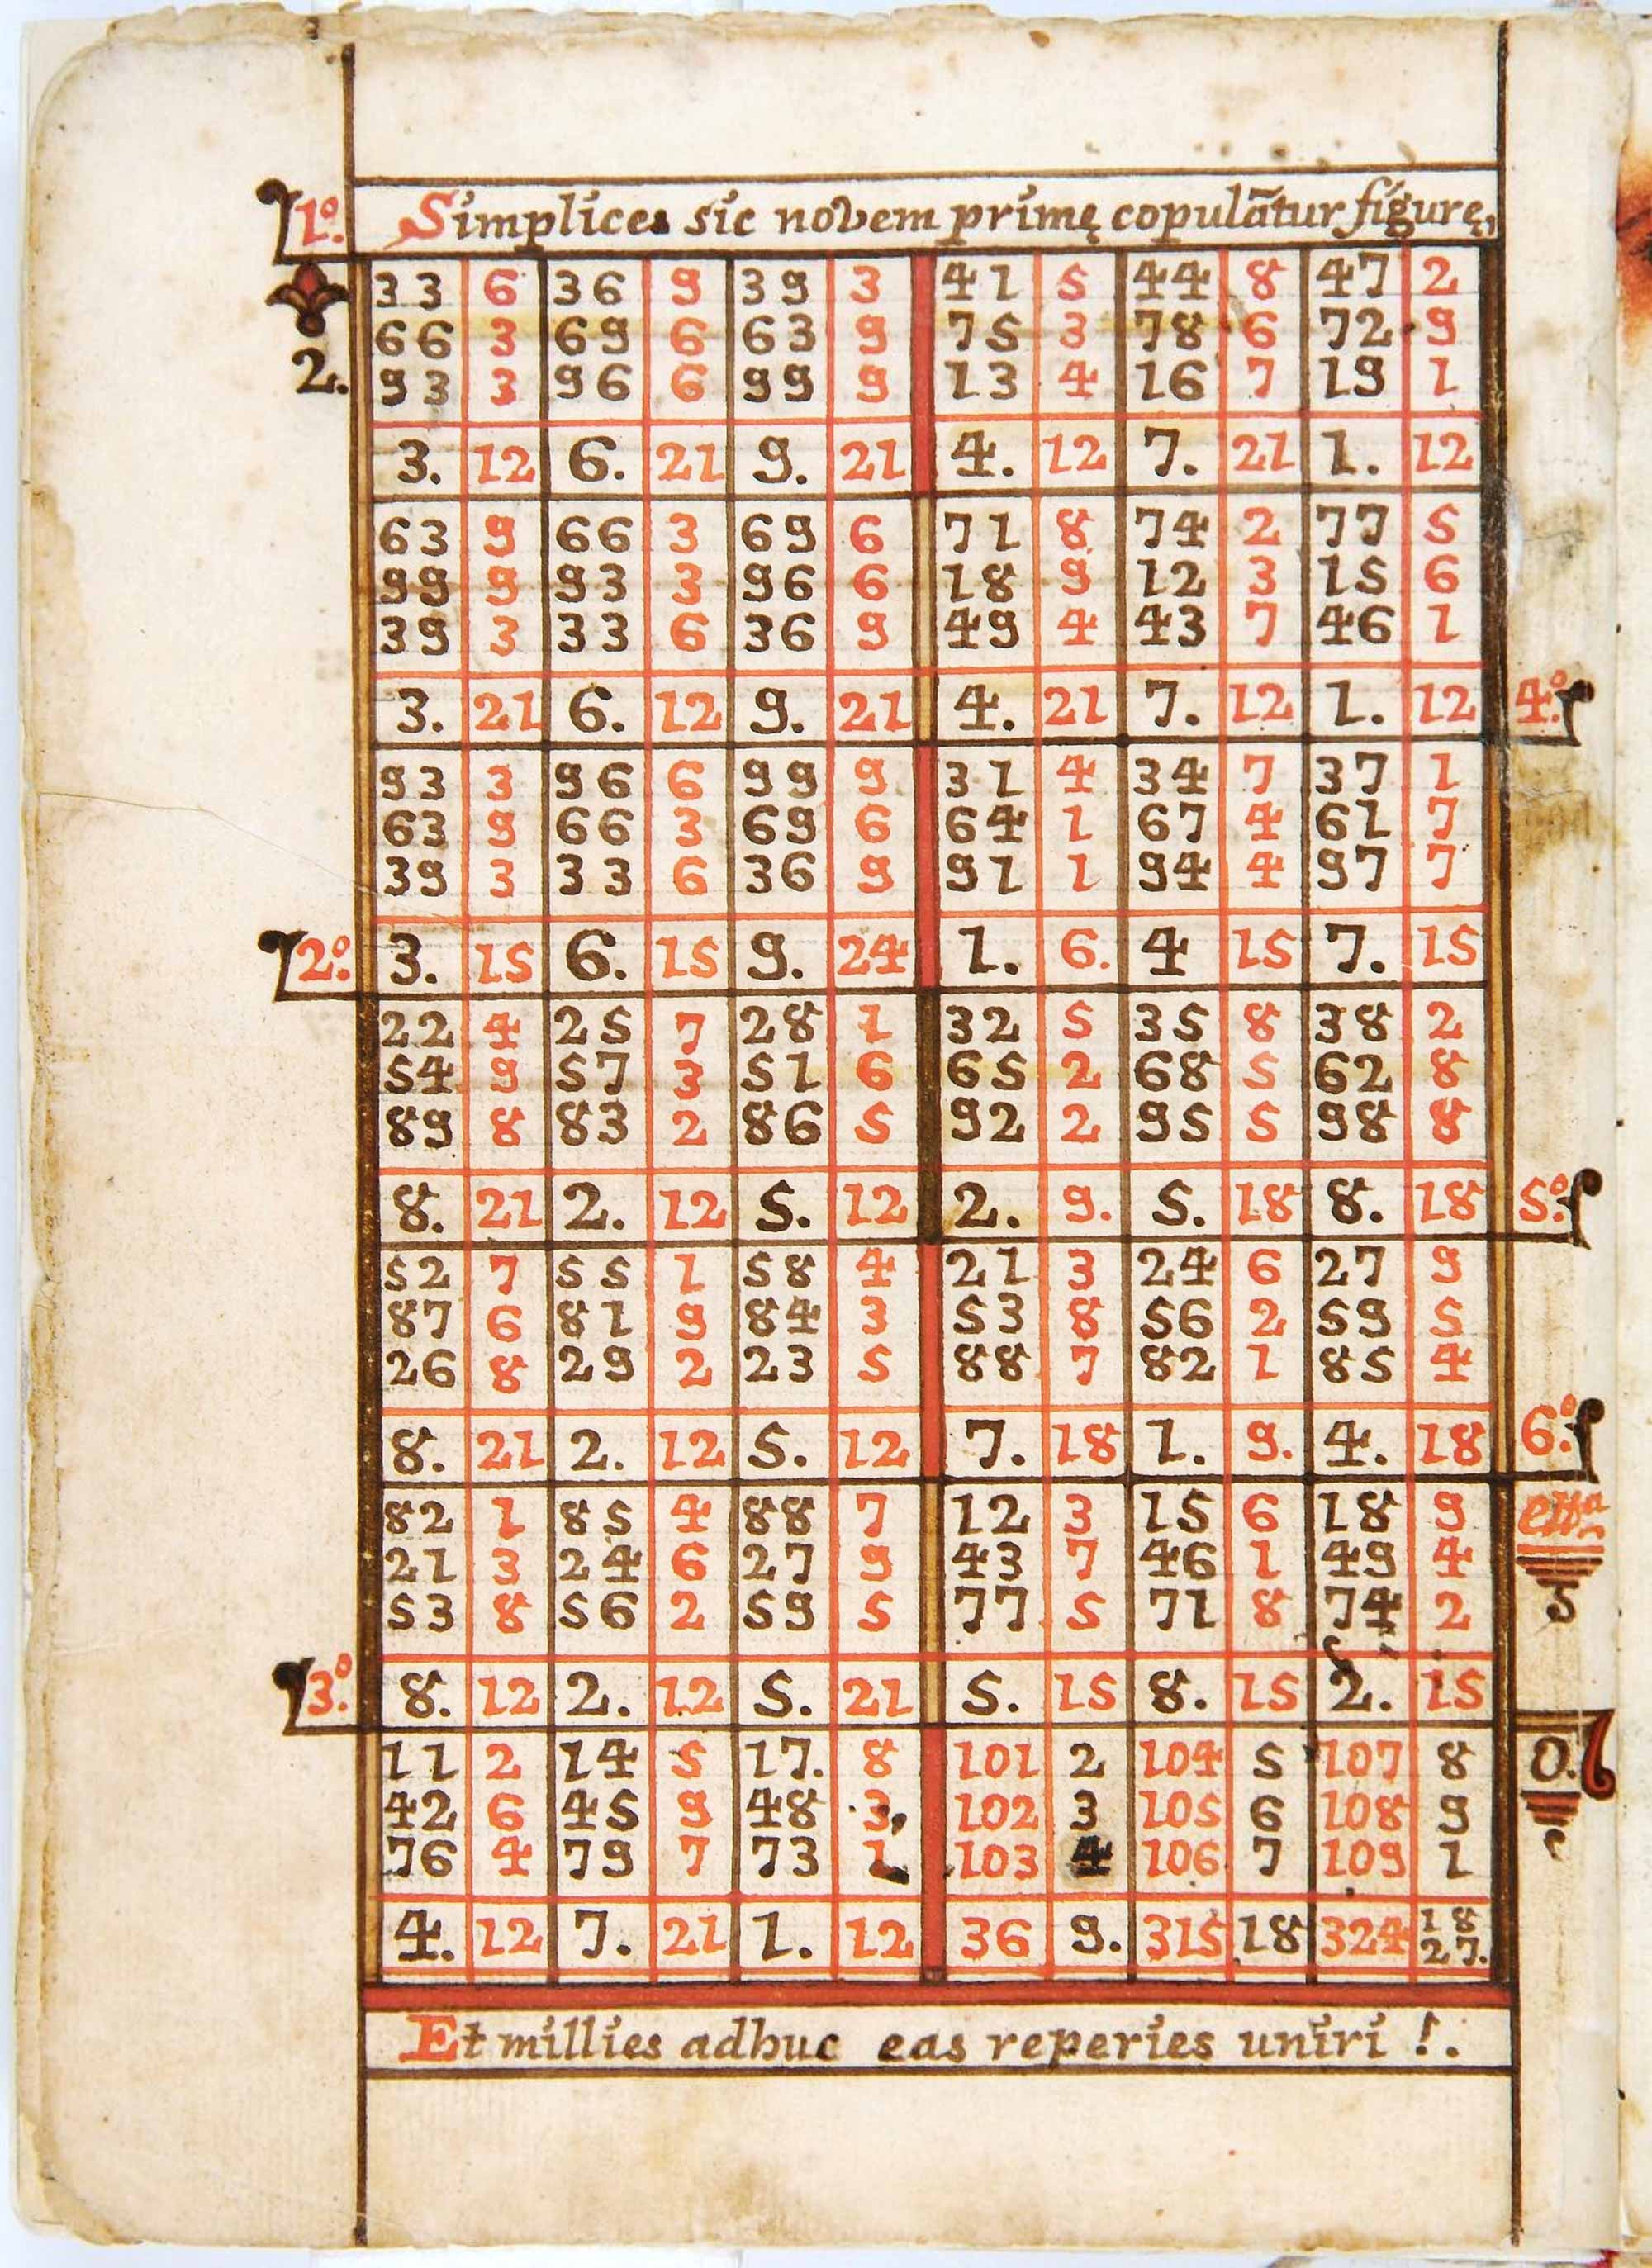 1º. Simplices sic novem primę copulãtur figurę,
33 6 36 9 39 3 41 5 44 8 47 2
66 3 69 6 63 9 75 3 78 6 72 9
2. 93 3 96 6 99 9 13 4 16 7 19 1
3. 12 6. 21 9. 21 4. 12 7. 21 1. 12
63 9 66 3 69 6 71 8 74 2 77 5
99 9 93 3 96 6 18 9 12 3 15 6
39 3 33 6 36 9 49 4 43 7 46 1
3. 21 6. 12 9. 21 4. 21 7. 12 1. 12 4º.
93 3 96 6 99 9 31 4 34 7 37 1
63 9 66 3 69 6 64 1 67 4 61 7
39 3 33 6 36 9 91 1 94 4 97 7
2º. 3. 15 6. 15 9. 24 1. 6. 4 15 7. 15
22 4 25 7 28 1 32 5 35 8 38 2
54 9 57 3 51 6 65 2 68 5 62 8
89 8 83 2 86 5 92 2 95 5 98 8
8. 21 2. 12 5. 12 2. 9. 5. 18 8. 18 5º.
52 7 55 1 58 4 21 3 24 6 27 9
87 6 81 9 84 3 53 8 56 2 59 5
26 8 29 2 23 5 88 7 82 1 85 4
8. 21 2. 12 5. 12 7. 18 1. 9. 4. 18 6º.
82 1 85 4 88 7 12 3 15 6 18 9
21 3 24 6 27 9 43 7 46 1 49 4
53 8 56 2 59 5 77 5 71 8 74 2
3º. 8. 12 2. 12 5. 21 5. 15 8. 15 2. 15
11 2 14 5 17. 8 101 2 104 5 107 8 0.
42 6 45 9 48 3 102 3 105 6 108 9
76 4 79 7 73 1 103 4 106 7 109 1
4. 12 7. 21 1. 12 36 9. 315 18 324 18
27.
Et millies adhuc eas reperies uniri !.